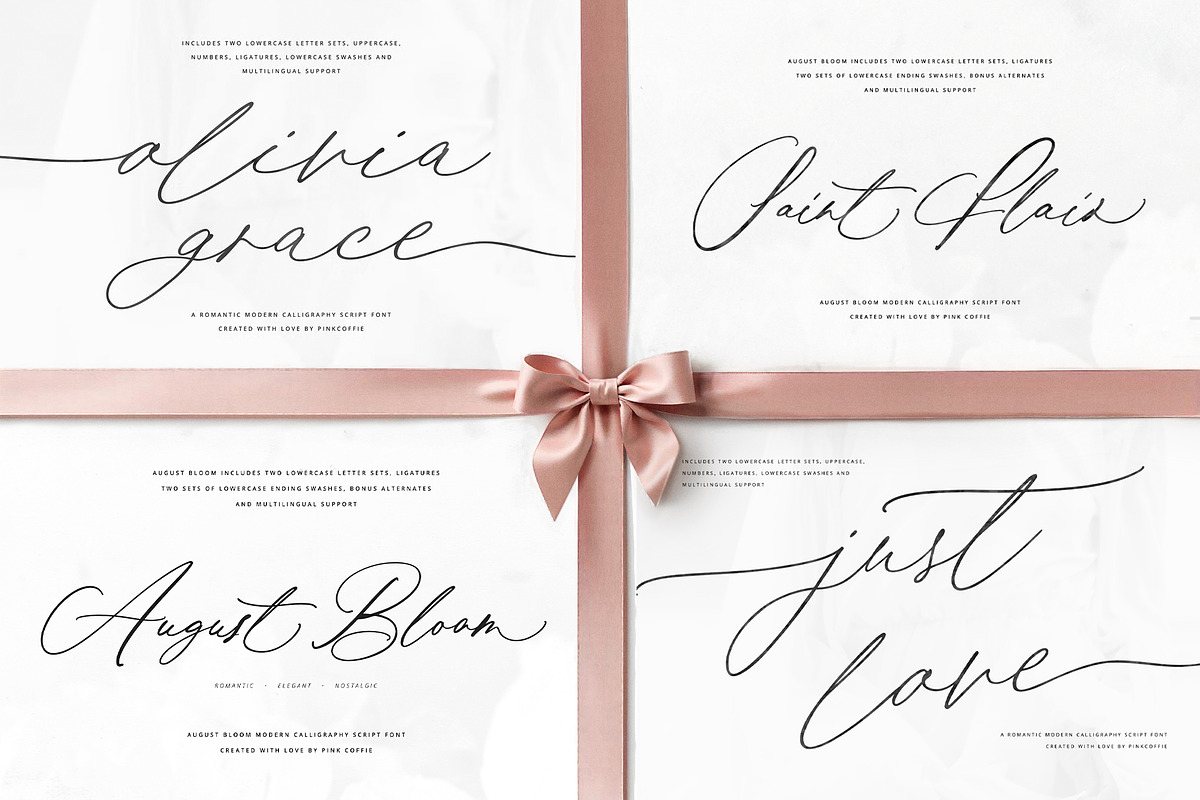 INCLUDES TWO LOWERCASE LETTER SETS, UPPERCASE,
NUMBERS, LIGATURES, LOWERCASE SWASHES AND
MULTILINGUAL SUPPORT
olivia
grace
A ROMANTIC MODERN CALLIGRAPHY SCRIPT FONT
CREATED WITH LOVE BY PINKCOFFIE
AUGUST BLOOM INCLUDES TWO LOWERCASE LETTER SETS, LIGATURES
TWO SETS OF LOWERCASE ENDING SWASHES, BONUS ALTERNATES
AND MULTILINGUAL SUPPORT
Saint Flair
AUGUST BLOOM MODERN CALLIGRAPHY SCRIPT FONT
CREATED WITH LOVE BY PINK COFFIE
AUGUST BLOOM INCLUDES TWO LOWERCASE LETTER SETS, LIGATURES
TWO SETS OF LOWERCASE ENDING SWASHES, BONUS ALTERNATES
AND MULTILINGUAL SUPPORT
August Bloom
ROMANTIC - ELEGANT - NOSTALGIC
AUGUST BLOOM MODERN CALLIGRAPHY SCRIPT FONT
CREATED WITH LOVE BY PINK COFFIE
INCLUDES TWO LOWERCASE LETTER SETS, UPPERCASE,
NUMBERS, LIGATURES, LOWERCASE SWASHES AND
MULTILINGUAL SUPPORT
just
love
A ROMANTIC MODERN CALLIGRAPHY SCRIPT FONT
CREATED WITH LOVE BY PINKCOFFIE